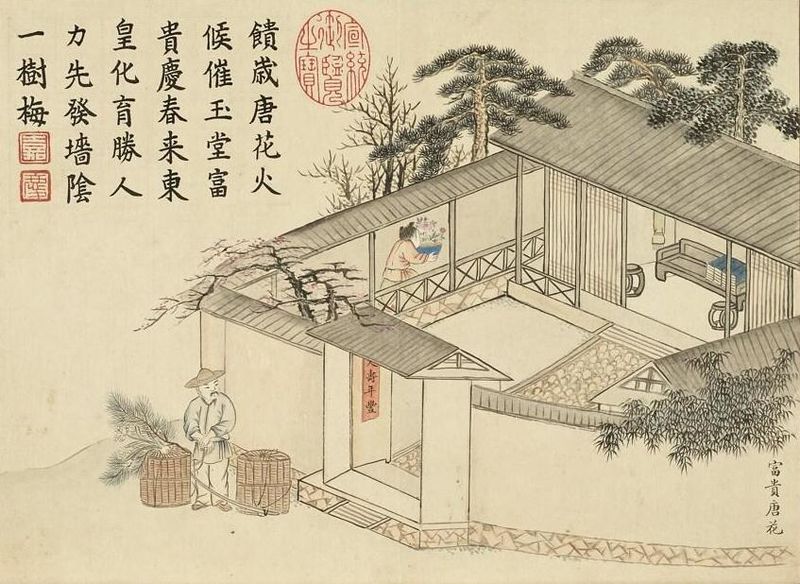 饋歲唐花火
候催玉堂富
貴慶春来東
皇化育勝人
力先發墻陰
一樹梅
嘉
慶
宣統御覽之寶
人壽年豐
富貴唐花